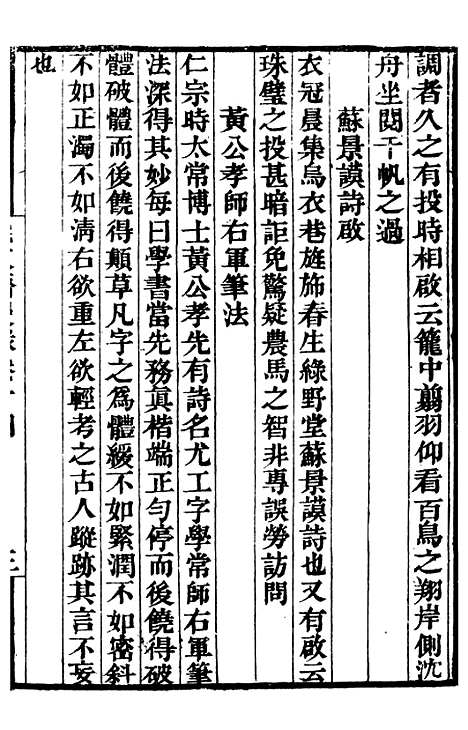 調者久之有投時相啟云籠中翦羽仰看百鳥之翔岸側沈
舟坐閱千帆之過
蘇景謨詩啟
衣冠晨集烏衣巷旌斾春生綠野堂蘇景謨詩也又有啟云
珠璧之投甚暗詎免驚疑農馬之智非專誤勞訪問
黃公孝師右軍筆法
仁宗時太常博士黃公孝先有詩名尤工字學常師右軍筆
法深得其妙每曰學書當先務眞楷端正勻停而後饒得破
體破體而後饒得顛草凡字之爲體緩不如緊濶不如密斜
不如正濁不如淸右欲重左欲輕考之古人蹤跡其言不妄
也